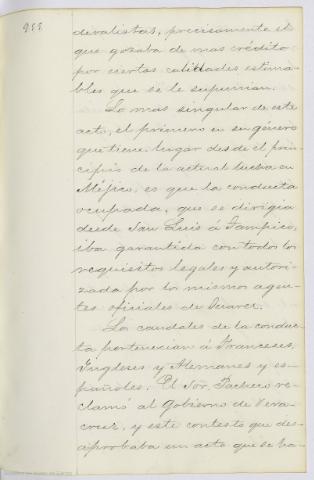 955.
devalistas, precisamente el
que gozaba de mas crédito
por ciertas calidades estima-
bles que se le suponian.
Lo mas singular de este
acto, el primero en su género
que tiene lugar desde el prin-
cipio de la actual lucha en
Méjico, es que la conducta
ocupada, que se dirigia
desde San Luis á Tampico,
iba garantida con todos los
requisitos legales y autori-
zada por los mismos agen-
tes oficiales de Juarez.
Los caudales de la conduc-
ta pertenecian á Franceses,
Ingleses y Alemanes y es-
pañoles. El Sor. Pacheco re-
clamó al Gobierno de Vera-
cruz, y este contestó que des-
aprobaba un acto que se ha-